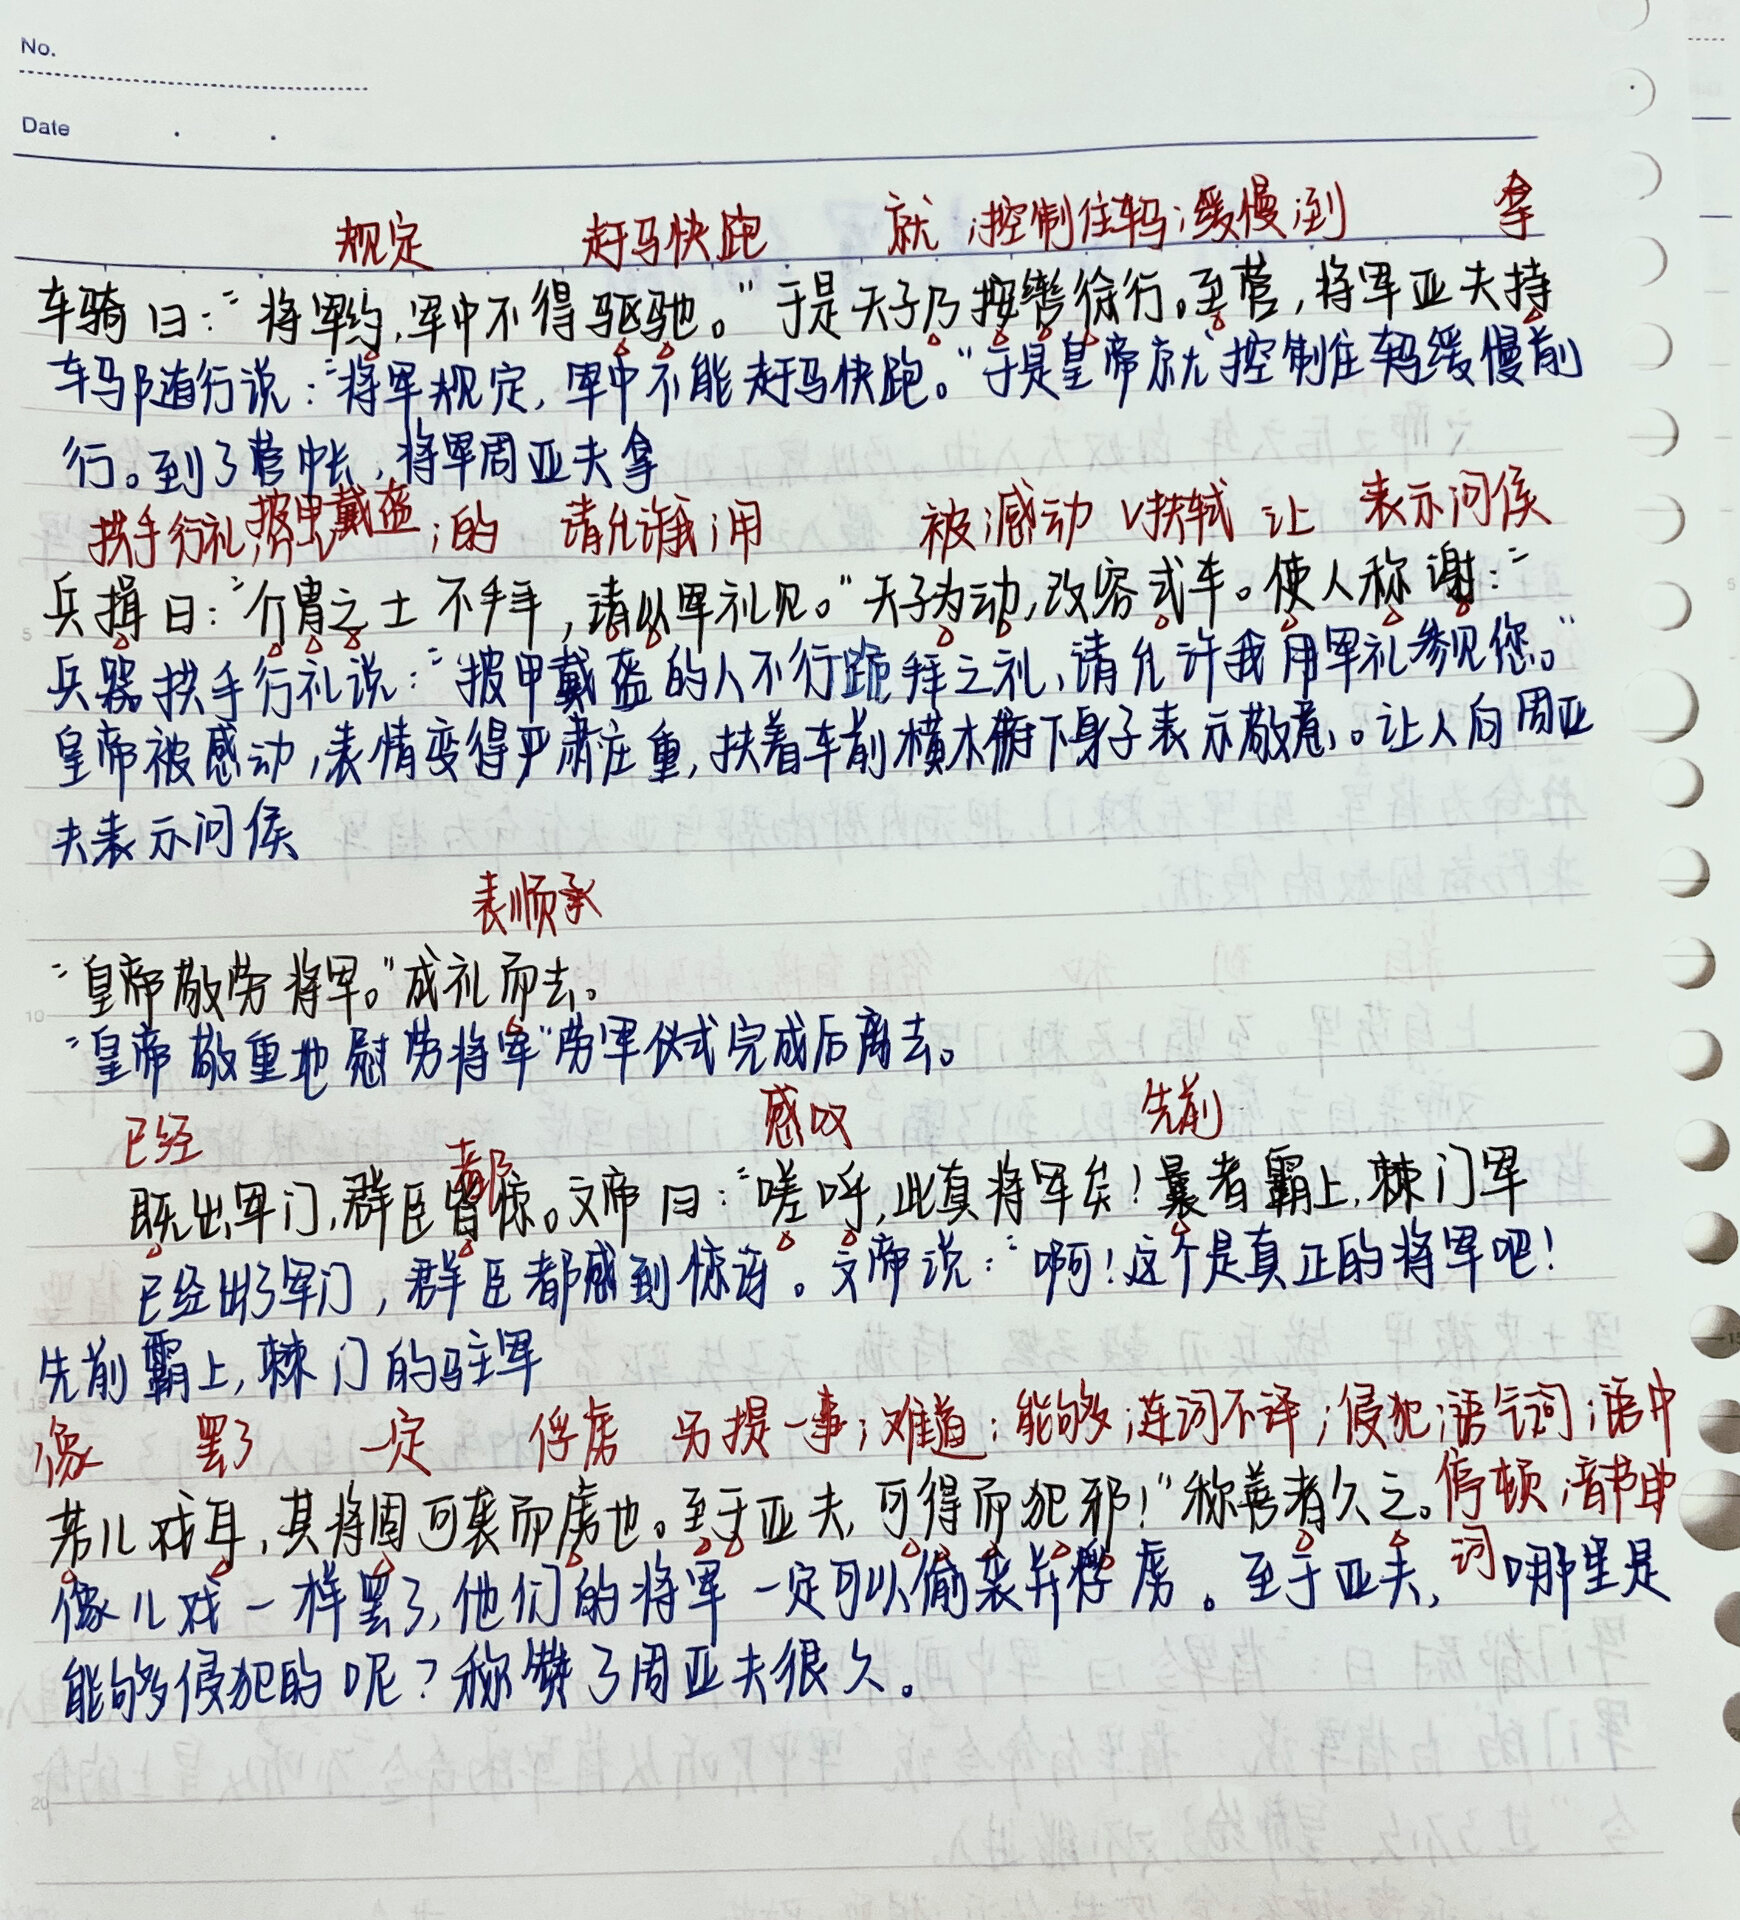 No.
Date
规定 赶马快跑 就;控制住车马;缓慢;到 拿
车骑曰:“将军约,军中不得驱驰。”于是天子乃按辔徐行。至营,将军亚夫持
车马随行说:“将军规定,军中不能赶马快跑。“于是皇帝就控制住车马缓慢前
行。到了营中帐,将军周亚夫拿
拱手行礼;披甲戴盔;的 请允许我;用 被;感动 扶轼 让 表示问侯
兵揖曰:“介胄之士不拜,请以军礼见。”天子为动,改容式车。使人称谢:“
兵器拱手行礼说:“披甲戴盔的人不行跪拜之礼,请允许我用军礼参见您。”
皇帝被感动,表情变得严肃庄重,扶着车前横木俯下身子表示敬意。让人向周亚
夫表示问侯
表顺承
“皇帝敬劳将军。”成礼而去。
“皇帝敬重地慰劳将军”劳军仪式完成后离去。
已经 都 感叹 先前
既出军门,群臣皆惊。文帝曰:“嗟呼,此真将军矣!曩者霸上,棘门军
已经出了军门,群臣都感到惊讶。文帝说:“啊!这个是真正的将军吧!
先前霸上,棘门的驻军
像 罢了 一定 俘虏 另提一事;难道;能够;连词不译;侵犯;语气词;语中
若儿戏耳,其将固可袭而虏也。至于亚夫,可得而犯邪!”称善者久之。停顿;音节助
像儿戏一样罢了,他们的将军一定可以偷袭并俘虏。至于亚夫,词 哪里是
能够侵犯的呢?称赞了周亚夫很久。